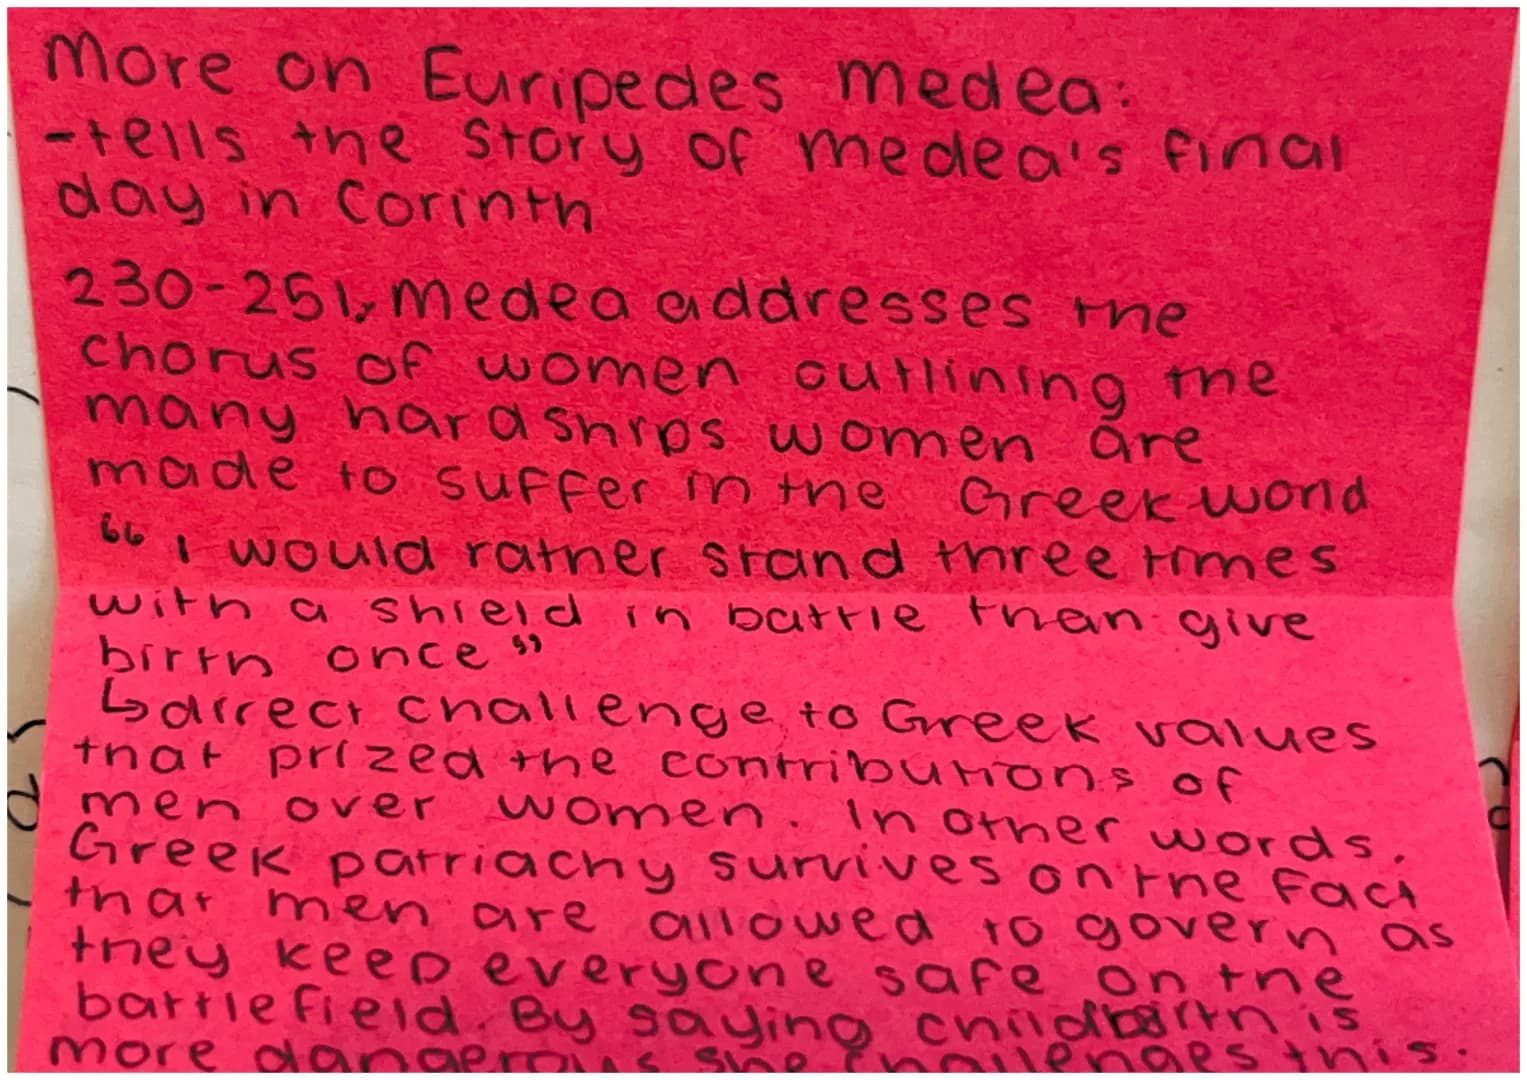 More on Euripedes medea:
-tells the story of medea's final
day in Corinth
230-251, medea addresses the
chorus of women outlining the
many hardships women are
made to suffer in the Greek world
“I would rather stand three times
with a shield in battle than give
birth once”
↳direct challenge to Greek values
that prized the contributions of
men over women. In other words,
Greek patriachy survives on the fact
that men are allowed to govern as
they keep everyone safe on the
battlefield. By saying childbirth is
more dangerous she challenges this.